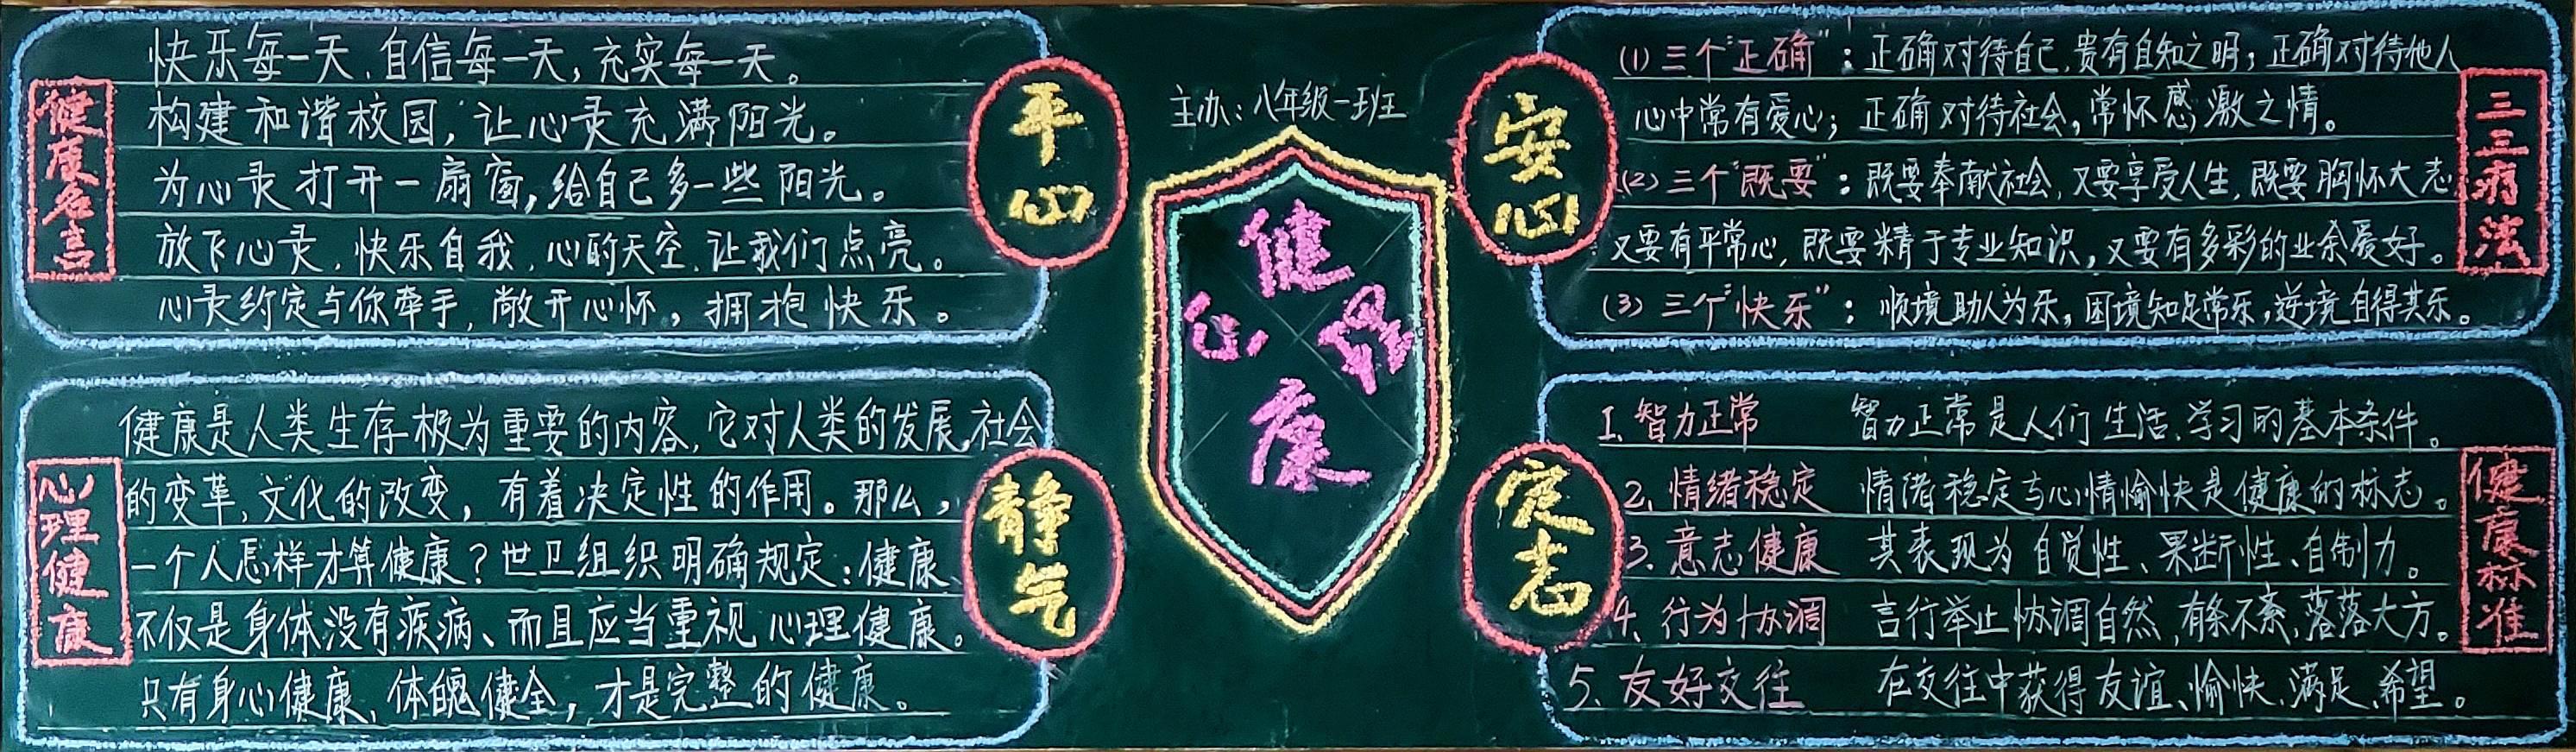 健康名言
快乐每一天、自信每一天，充实每一天。
构建和谐校园，让心灵充满阳光。
为心灵打开一扇窗，给自己多一些阳光。
放飞心灵、快乐自我、心的天空、让我们点亮。
心灵约定与你牵手，敞开心怀，拥抱快乐。
平心
主办：八年级一班
健
心 理
康
安心
(1) 三个"正确"：正确对待自己，贵有自知之明；正确对待他人
心中常有爱心；正确对待社会，常怀感激之情。
(2) 三个"既要"：既要奉献社会，又要享受人生，既要胸怀大志
又要有平常心，既要精于专业知识，又要有多彩的业余爱好。
(3) 三个"快乐"：顺境助人为乐，困境知足常乐，逆境自得其乐。
三三疗法
心理健康
健康是人类生存极为重要的内容，它对人类的发展，社会
的变革，文化的改变，有着决定性的作用。那么，
一个人怎样才算健康？世卫组织明确规定：健康、
不仅是身体没有疾病、而且应当重视心理健康。
只有身心健康、体魄健全，才是完整的健康。
静气
定志
1. 智力正常 智力正常是人们生活、学习的基本条件。
2. 情绪稳定 情绪稳定与心情愉快是健康的标志。
3. 意志健康 其表现为自觉性、果断性、自制力。
4. 行为协调 言行举止协调自然，有条不紊，落落大方。
5. 友好交往 在交往中获得友谊、愉快、满足、希望。
健康标准